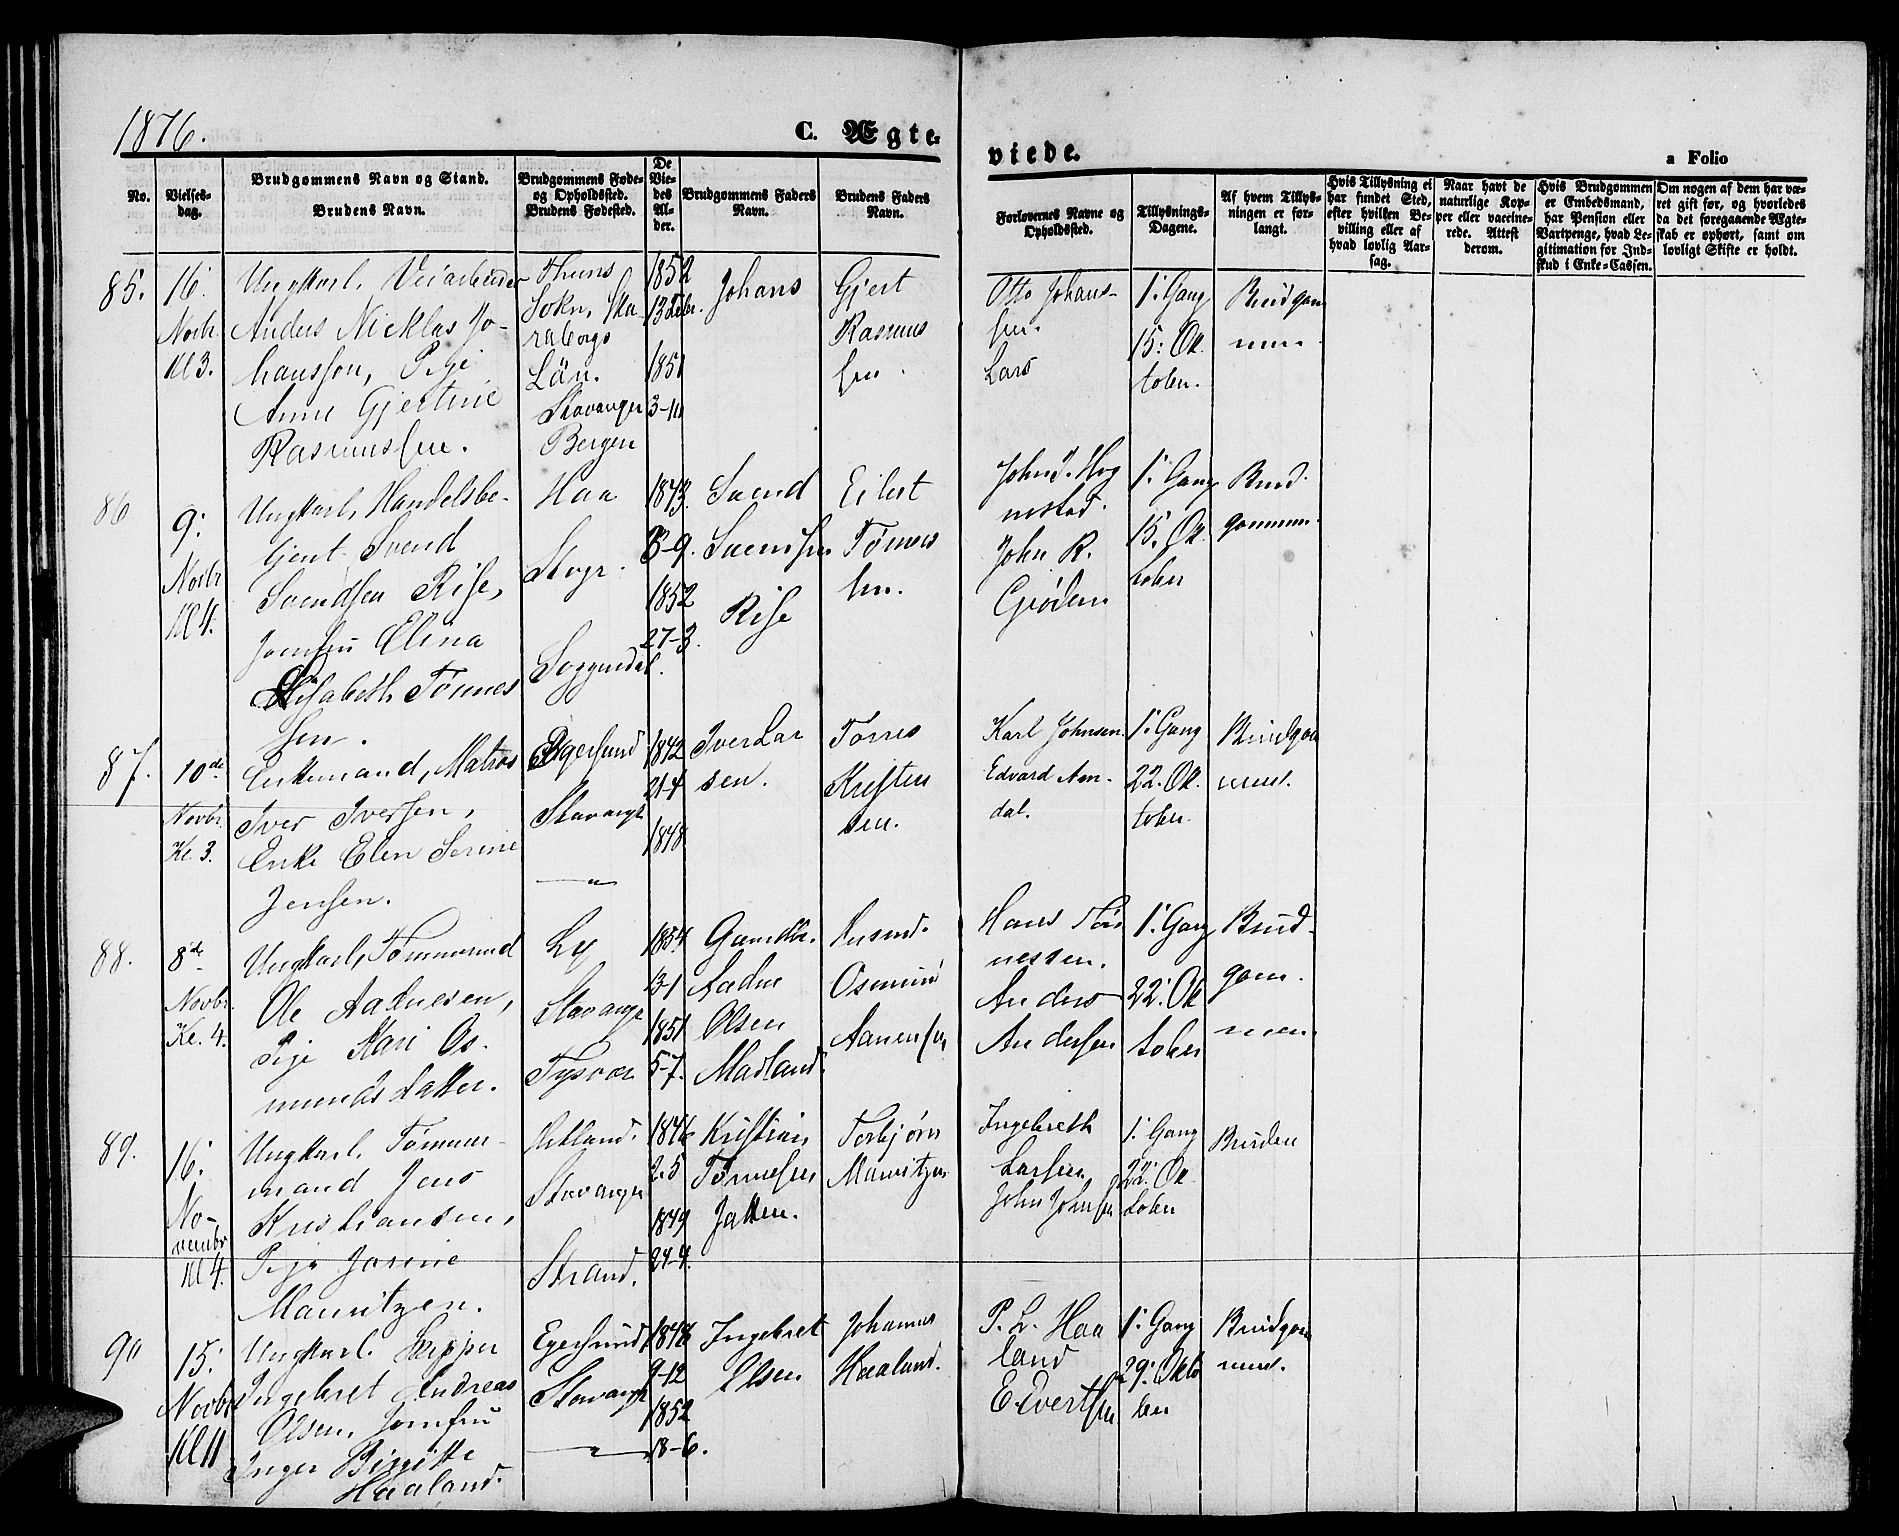 1876.
C. Ægte-
viede.
a Folio
No.
Vielses-
dag.
Brudgommens Navn og Stand.
Brudens Navn.
Brudgommens Føde-
og Opholdssted.
Brudens Fødested.
De
Vie-
des
Al-
der.
Brudgommens Faders
Navn.
Brudens Faders
Navn.
Forlovernes Navne og
Opholdssted.
Tillysnings-
Dagene.
Af hvem Tillys-
ningen er for-
langt.
Hvis Tillysning ei
har fundet Sted,
efter hvilken Be-
villing eller af
hvad lovlig Aar-
sag.
Naar havt de
naturlige Kop-
per eller vaccine-
rede. Attest
derom.
Hvis Brudgommen
er Embedsmand,
har Pension eller
Vartpenge, hvad Le-
gitimation for Ind-
skud i Enke-Cassen.
Om nogen af dem har væ-
ret gift før, og hvorledes
da det foregaaende Ægte-
skab er ophørt, samt om
lovligt Skifte er holdt.
85.
16.
Novbr
Kl 3.
Ungkarl. Veiarbeider
Anders Nicklas Jo-
hansson, Pige
Anne Gjertine
Rasmussen.
Thuns
Sokn, Ska
raborgs
Län.
Stavanger
Bergen
1852
13
1851
3-10
Johans
Gjert
Rasmus
sen.
Otto Johan-
sen.
Lars
1: Gang
15: Ok
tober.
Brudgom
men.
86
9:
Novbr
Kl 4.
Ungkarl, Handelsbe-
tjent Svend
Svendsen Rise,
Jomfru Elina
Elisabeth Tönnes
sen.
Haa
Stvgr.
Soggendal.
1843.
3-9.
1852
27-3.
Svend
Svendsen
Rise
Eilert
Tönnes
sen.
John J. Hog
nestad.
John R.
Grödem
1: Gang
15. Ok
tober
Brud-
gommen.
87.
10de
Novbr.
Kl. 3.
Enkemand, Matros
Iver Iversen,
Enke Elen Serine
Jensen.
Egersund
Stavanger
—"—
1842
21-4
1848
Iver Lar
sen.
Torres
Kristen
sen.
Karl Johnsen.
Edvard Aan-
dal.
1: Gang
22. Ok.
tober.
Brudgom
men.
88.
8de
Novbr.
Kl. 4.
Ungkarl, Tömmermd
Ole Aadnesen,
Pige Kari Os-
mundsdatter.
Ly
Stavanger
Tysvær
1854
3-1
1851
5-7.
Gaardbr.
Aadne
Olsen
Madland.
Husmd.
Osmund
Aanensen
Hans Tön
nessen.
Anders
Andersen
1: Gang
22: Ok
tober
Brud-
gom-
men.
89.
16:
No-
vembr
Kl 4.
Ungkarl. Tömmer-
mand Jens
Kristiansen,
Pige Josine
Mauritzen.
Stavanger
Strand.
1846
2-5
1849
24-4.
Kristian
Tönnesen
Jatten.
Torbjörn
Mauritzen
Ingebreth
Larsen
John Johnsen
1: Gang
22: Ok
tober
Bruden
90
15:
Novbr
Kl 11
Ungkarl. Skipper
Ingebret Andreas
Olsen, Jomfru
Inger Birgitte
Haaland.
Egersund
Stavanger
—"—
1848
9-12
1852
18-6.
Ingebret
Olsen
Johannes
Haaland.
P. L. Haa
land
E. Evertsen
1: Gang
29: Okto
ber
Brudgom
men.